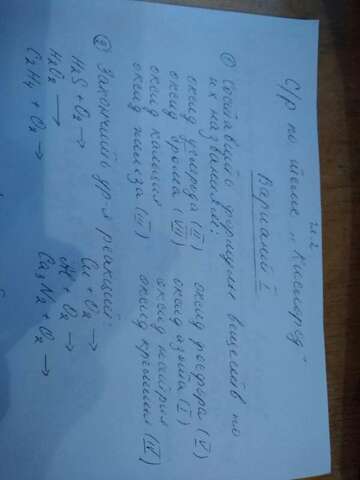 С/р по теме „Кислород"
Вариант I
① Составить формулы веществ по
их названиям:
оксид углерода (II) оксид фосфора (V)
оксид брома (VII) оксид азота (I)
оксид кальция оксид натрия
оксид железа (III) оксид кремния (IV)
② Закончить ур-я реакций:
H₂S + O₂ → Cu + O₂ →
H₂O₂ → Al + O₂ →
C₂H₄ + O₂ → Ca₃N₂ + O₂ →